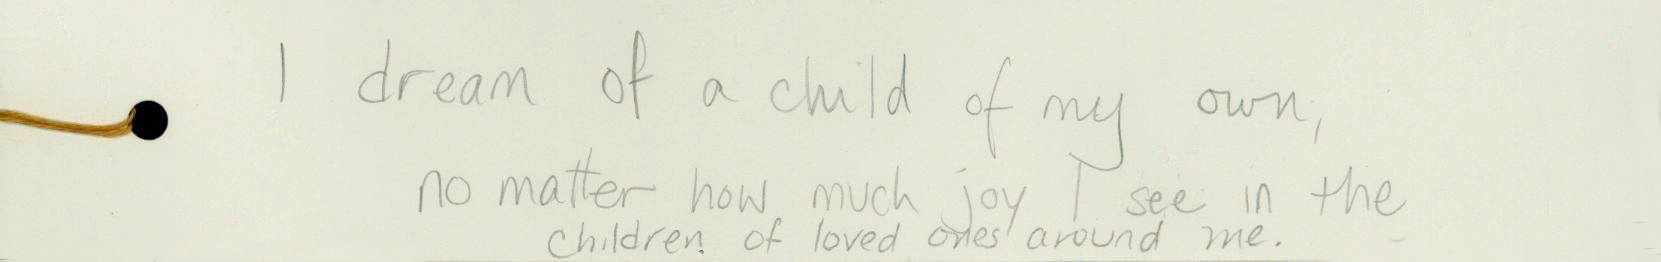 I dream of a child of my own,
no matter how much joy I see in the
children of loved ones around me.